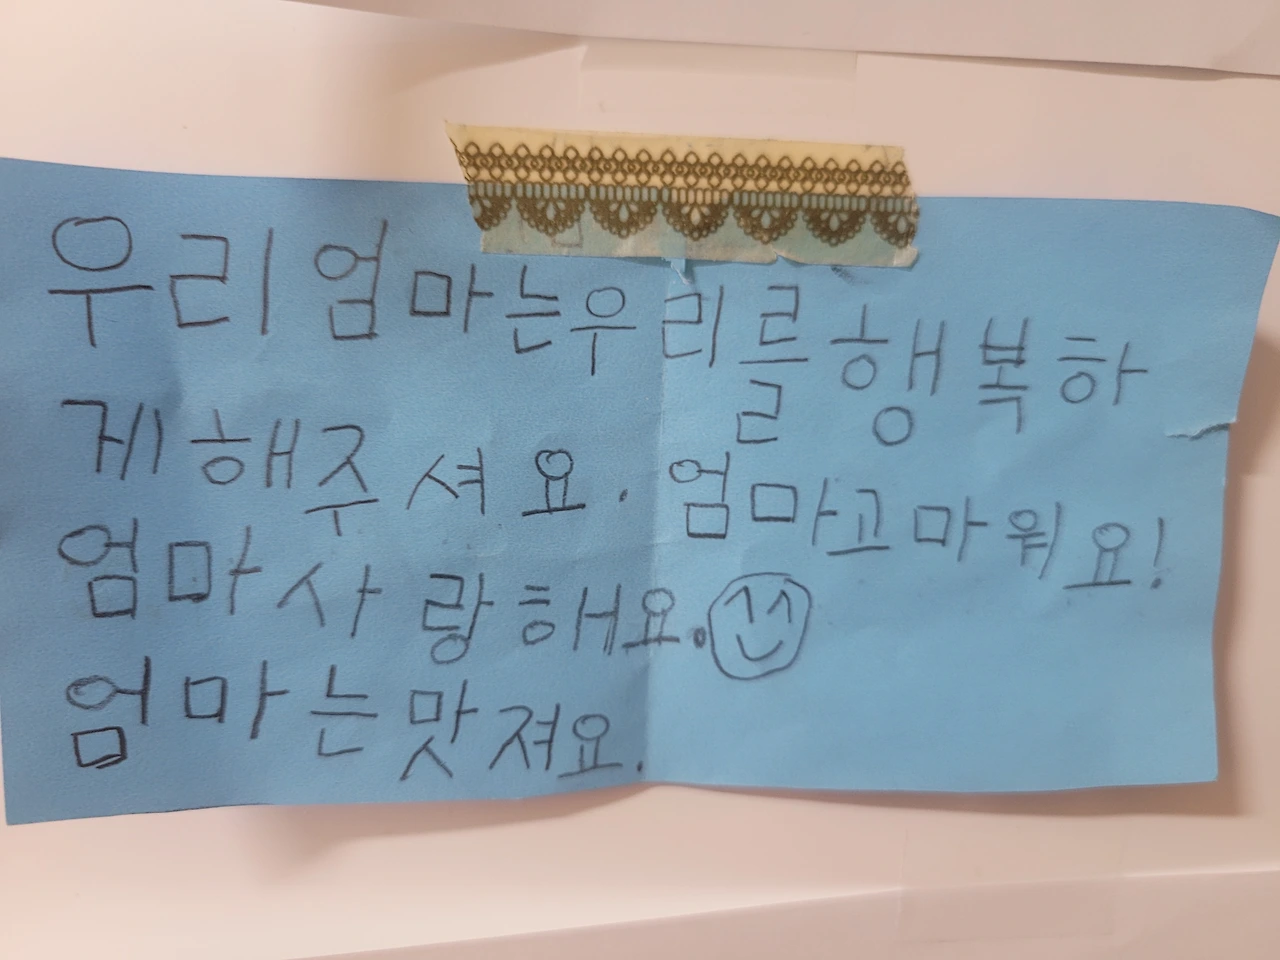 우리 엄마는 우리를 행복하
게 해주셔요. 엄마 고마워요!
엄마 사랑해요.
엄마는 맛져요.